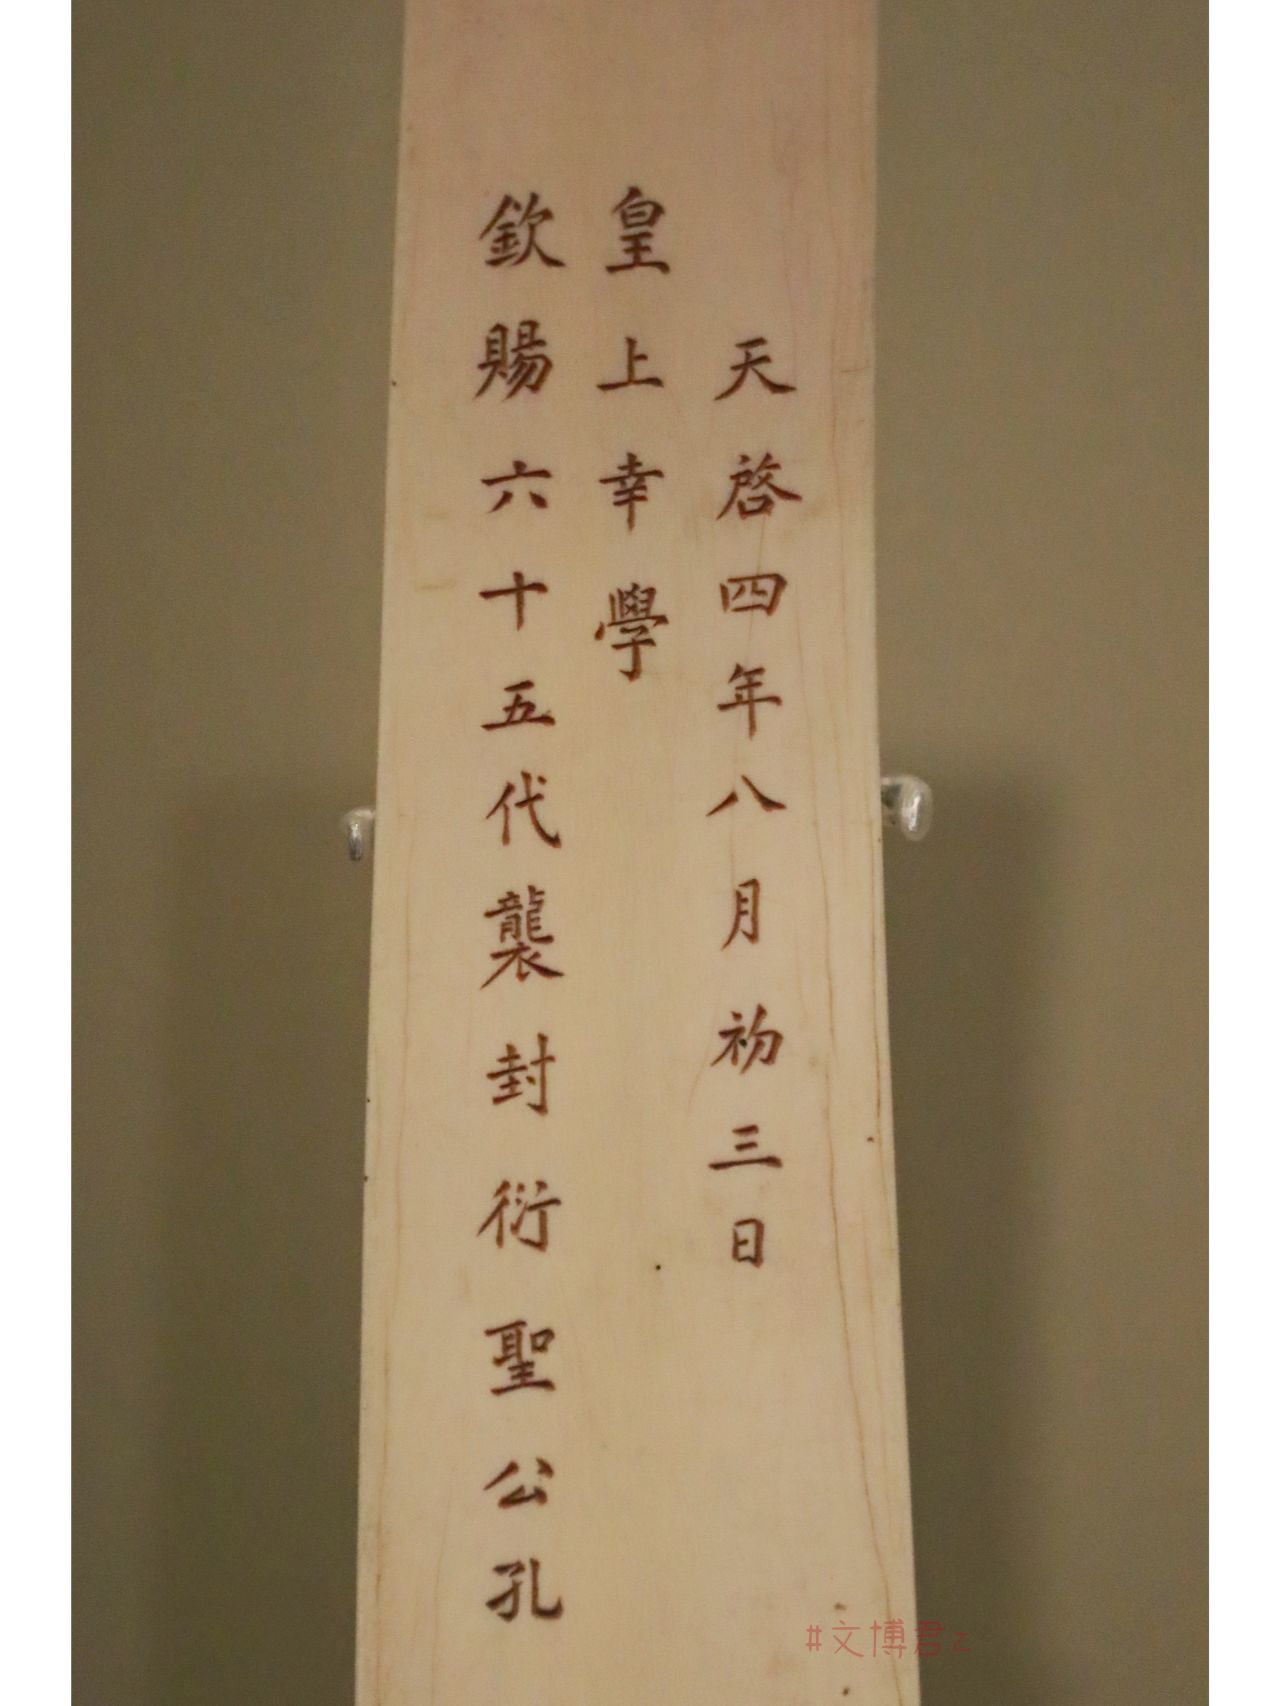 天啓四年八月初三日
皇上幸學
欽賜六十五代襲封衍聖公孔
#文博君z